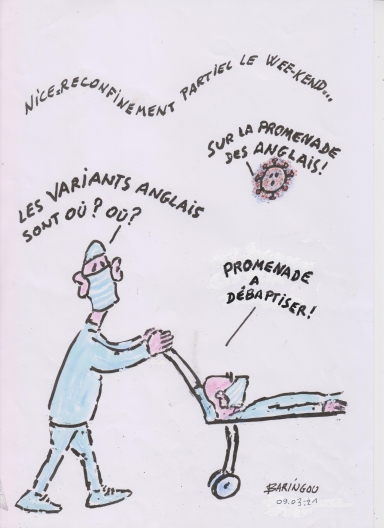 NICE=RECONFINEMENT PARTIEL LE WEE-KEND...
SUR LA PROMENADE
DES ANGLAIS!
LES VARIANTS ANGLAIS
SONT OÙ? OÙ?
PROMENADE
A
DÉBAPTISER!
BARINGOU
09.03.21